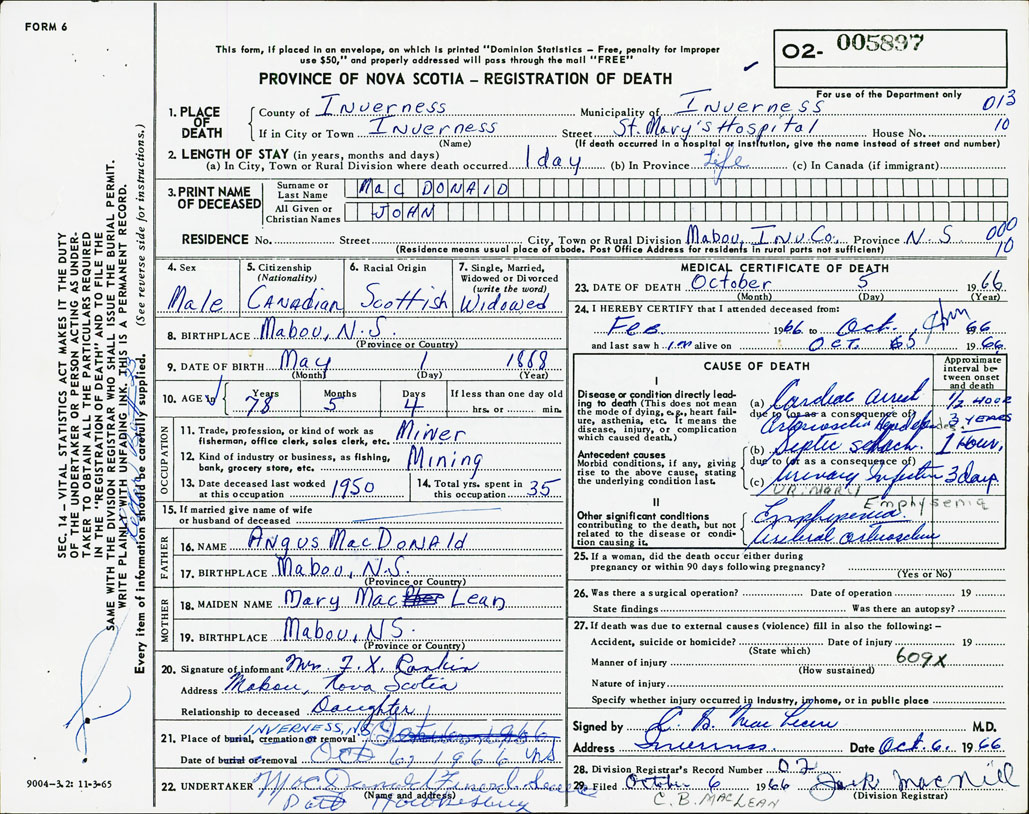 FORM 6
This form, if placed in an envelope, on which is printed "Dominion Statistics – Free, penalty for improper
use $50," and properly addressed will pass through the mail "FREE"
O2- 005897
PROVINCE OF NOVA SCOTIA – REGISTRATION OF DEATH
For use of the Department only
013
10
1. PLACE OF DEATH
County of Inverness Municipality of Inverness
If in City or Town Inverness Street St. Mary's Hospital House No.
(Name) (If death occurred in a hospital or institution, give the name instead of street and number)
2. LENGTH OF STAY (in years, months and days)
(a) In City, Town or Rural Division where death occurred 1 day (b) In Province Life (c) In Canada (if immigrant)
3. PRINT NAME OF DECEASED
Surname or Last Name MacDONAlD
All Given or Christian Names JOHN
RESIDENCE No. Street City, Town or Rural Division Mabou, Inv. Co. Province N.S
000
10
(Residence means usual place of abode. Post Office Address for residents in rural parts not sufficient)
4. Sex
Male
5. Citizenship (Nationality)
Canadian
6. Racial Origin
Scottish
7. Single, Married, Widowed or Divorced (write the word)
Widowed
8. BIRTHPLACE Mabou, N.S.
(Province or Country)
9. DATE OF BIRTH May 1 1888
(Month) (Day) (Year)
10. AGE Years 78 Months 5 Days 4 If less than one day old hrs. or min.
OCCUPATION
11. Trade, profession, or kind of work as fisherman, office clerk, sales clerk, etc. Miner
12. Kind of industry or business, as fishing, bank, grocery store, etc. Mining
13. Date deceased last worked at this occupation 1950
14. Total yrs. spent in this occupation 35
15. If married give name of wife or husband of deceased
FATHER
16. NAME Angus MacDonald
17. BIRTHPLACE Mabou, N.S.
(Province or Country)
MOTHER
18. MAIDEN NAME Mary Mac Lean
19. BIRTHPLACE Mabou, NS.
(Province or Country)
20. Signature of informant Mrs. F. X. Rankin
Address Mabou, Nova Scotia
Relationship to deceased Daughter
21. Place of burial, cremation or removal INVERNESS, N.S
Date of burial or removal Oct 6, 1966
22. UNDERTAKER MacDonald Funeral
(Name and address)
Port Hawkesbury
MEDICAL CERTIFICATE OF DEATH
23. DATE OF DEATH October 5 1966
(Month) (Day) (Year)
24. I HEREBY CERTIFY that I attended deceased from:
Feb 1966 to Oct. 66
and last saw h im alive on Oct. 5 1966
CAUSE OF DEATH
Approximate interval between onset and death
I
Disease or condition directly leading to death (This does not mean the mode of dying, e.g., heart failure, asthenia, etc. It means the disease, injury, or complication which caused death.)
(a) Cardiac arrest 1/2 HOUR
due to (or as a consequence of)
YEARS
Antecedent causes
Morbid conditions, if any, giving rise to the above cause, stating the underlying condition last.
(b) Septic 1 Hour,
due to (or as a consequence of)
(c) Urinary Infection 3 days
URINARY
Emphysema
II
Other significant conditions contributing to the death, but not related to the disease or condition causing it.
Emphysema
Cerebral
25. If a woman, did the death occur either during pregnancy or within 90 days following pregnancy?
(Yes or No)
26. Was there a surgical operation? Date of operation 19
State findings Was there an autopsy?
27. If death was due to external causes (violence) fill in also the following:–
Accident, suicide or homicide? Date of injury 19
(State which)
609X
Manner of injury
(How sustained)
Nature of injury
Specify whether injury occurred in industry, in home, or in public place
Signed by C. B. MacLean M.D.
Address Inverness Date Oct. 6, 1966
28. Division Registrar's Record Number 07
29. Filed October 6 1966 Jack MacNeill
C. B. MACLEAN (Division Registrar)
SEC. 14 – VITAL STATISTICS ACT MAKES IT THE DUTY
OF THE UNDERTAKER OR PERSON ACTING AS UNDER-
TAKER TO OBTAIN ALL THE PARTICULARS REQUIRED
IN THE "REGISTRATION OF DEATH" AND TO FILE THE
SAME WITH THE DIVISION REGISTRAR WHO SHALL ISSUE THE BURIAL PERMIT.
WRITE PLAINLY WITH UNFADING INK. THIS IS A PERMANENT RECORD.
Every item of information should be carefully supplied. (See reverse side for instructions.)
9004-3.2: 11-3-65